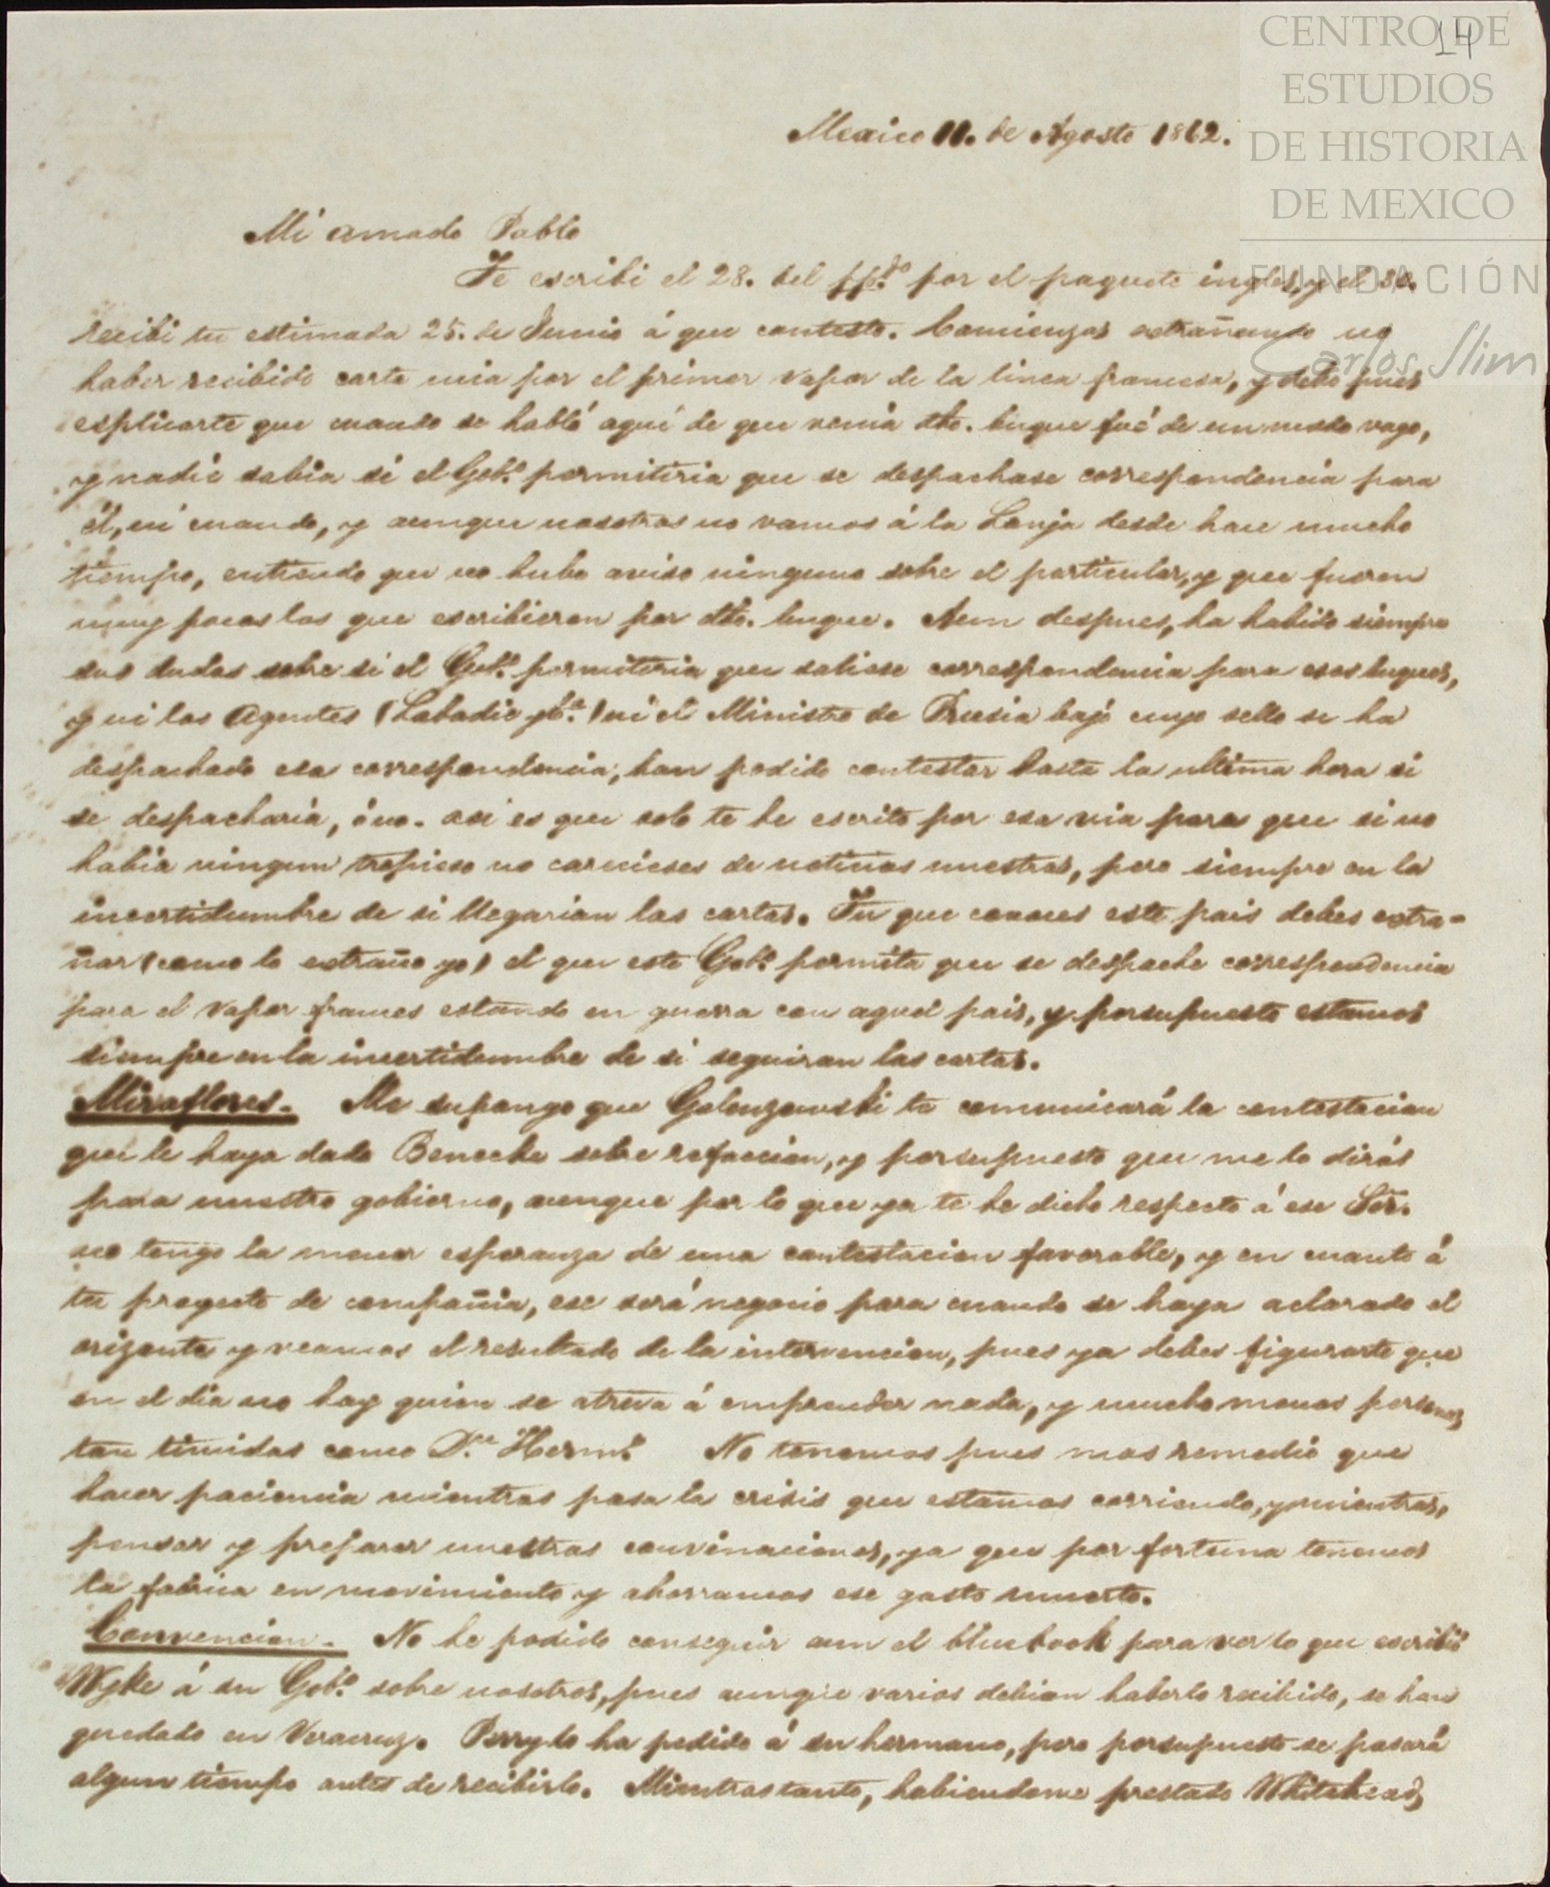 14
CENTRO DE
ESTUDIOS
DE HISTORIA
DE MEXICO
FUNDACIÓN
Carlos Slim
Mexico 11. de Agosto 1862.
Mi amado Pablo
Te escribi el 28. del ppdo. por el paquete ingles, y el 30.
recibi tu estimada 25. de Junio á que contesto. Comienzas extrañando no
haber recibido carta mia por el primer vapor de la linea francesa, y debo pues
esplicarte que cuando se habló aquí de que venia dho. buque fué de un modo vago,
y nadie sabia si el Gobo. permitiria que se despachase correspondencia para
él, ni cuando, y aunque nosotros no vamos á la Lonja desde hace mucho
tiempo, entiendo que no hubo aviso ninguno sobre el particular, y que fueron
muy pocos los que escribieron por dho. buque. Aun despues, ha habido siempre
sus dudas sobre si el Gobo. permitiria que saliese correspondencia para esos buques,
y ni los Agentes (Labadie y Ca.) ni el Ministro de Prusia bajo cuyo sello se ha
despachado esa correspondencia, han podido contestar hasta la ultima hora si
se despacharia, ó no. asi es que solo te he escrito por esa via para que si no
habia ningun tropieso no carecieses de noticias nuestras, pero siempre en la
incertidumbre de si llegarian las cartas. Tu que conoces este pais debes extra-
ñar (como lo extraño yo) el que este Gobo. permita que se despache correspondencia
para el vapor frances estando en guerra con aquel pais, y porsupuesto estamos
siempre en la incertidumbre de si seguiran las cartas.
Miraflores. Me supongo que Golonzowski te comunicará la contestacion
que le haya dado Benecke sobre refaccion, y porsupuesto que me lo dirás
para nuestro gobierno, aunque por lo que ya te he dicho respecto á ese Sor.
no tengo la menor esperanza de una contestacion favorable, y en cuanto á
tu proyecto de compañia, ese será negocio para cuando se haya aclarado el
orizonte y veamos el resultado de la intervencion, pues ya debes figurarte que
en el dia no hay quien se atreva á emprender nada, y mucho menos personas
tan timidas como Dn. Hermo. No tenemos pues mas remedio que
hacer paciencia mientras pasa la crisis que estamos corriendo, y mientras,
pensar y preparar nuestras convinaciones, ya que por fortuna tenemos
la fabrica en movimiento y ahorramos ese gasto muerto.
Convencion. No he podido conseguir aun el bluebook para ver lo que escribió
Wyke á su Gobo. sobre nosotros, pues aunque varios debian haberlo recibido, se han
quedado en Veracruz. Perry lo ha pedido á su hermano, pero porsupuesto se pasará
algun tiempo antes de recibirlo. Mientrastanto, habiendome prestado Whitehead,